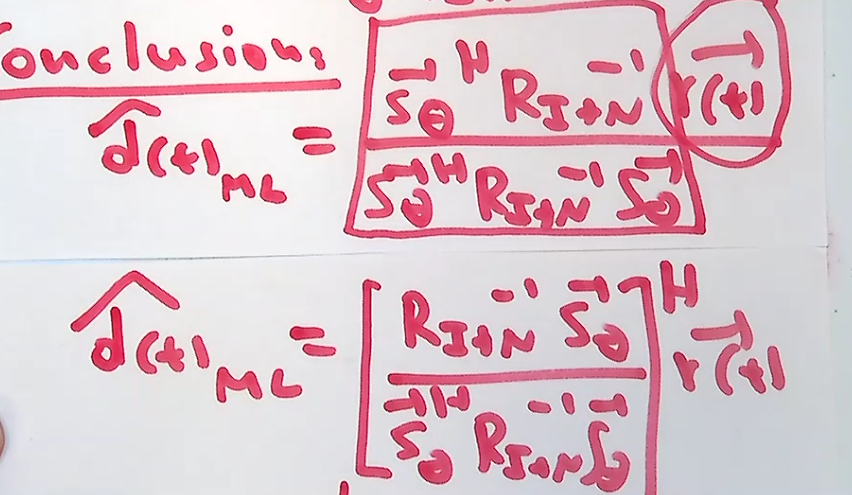 Conclusion:
\hat{d}(t)_{ML} = \frac{\vec{S}_\theta^H R_{I+N}^{-1} \vec{r}(t)}{\vec{S}_\theta^H R_{I+N}^{-1} \vec{S}_\theta}
\hat{d}(t)_{ML} = \left[ \frac{R_{I+N}^{-1} \vec{S}_\theta}{\vec{S}_\theta^H R_{I+N}^{-1} \vec{S}_\theta} \right]^H \vec{r}(t)